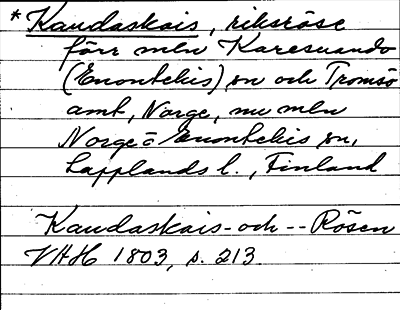 * Kaudaskais, riksröse
förr mln Karesuando
(Enontekis) sn och Tromsö
amt, Norge, nu mln
Norge o Enontekis sn,
Lapplands l., Finland
Kaudaskais-och -- Rösen
VHH 1803, s. 213.